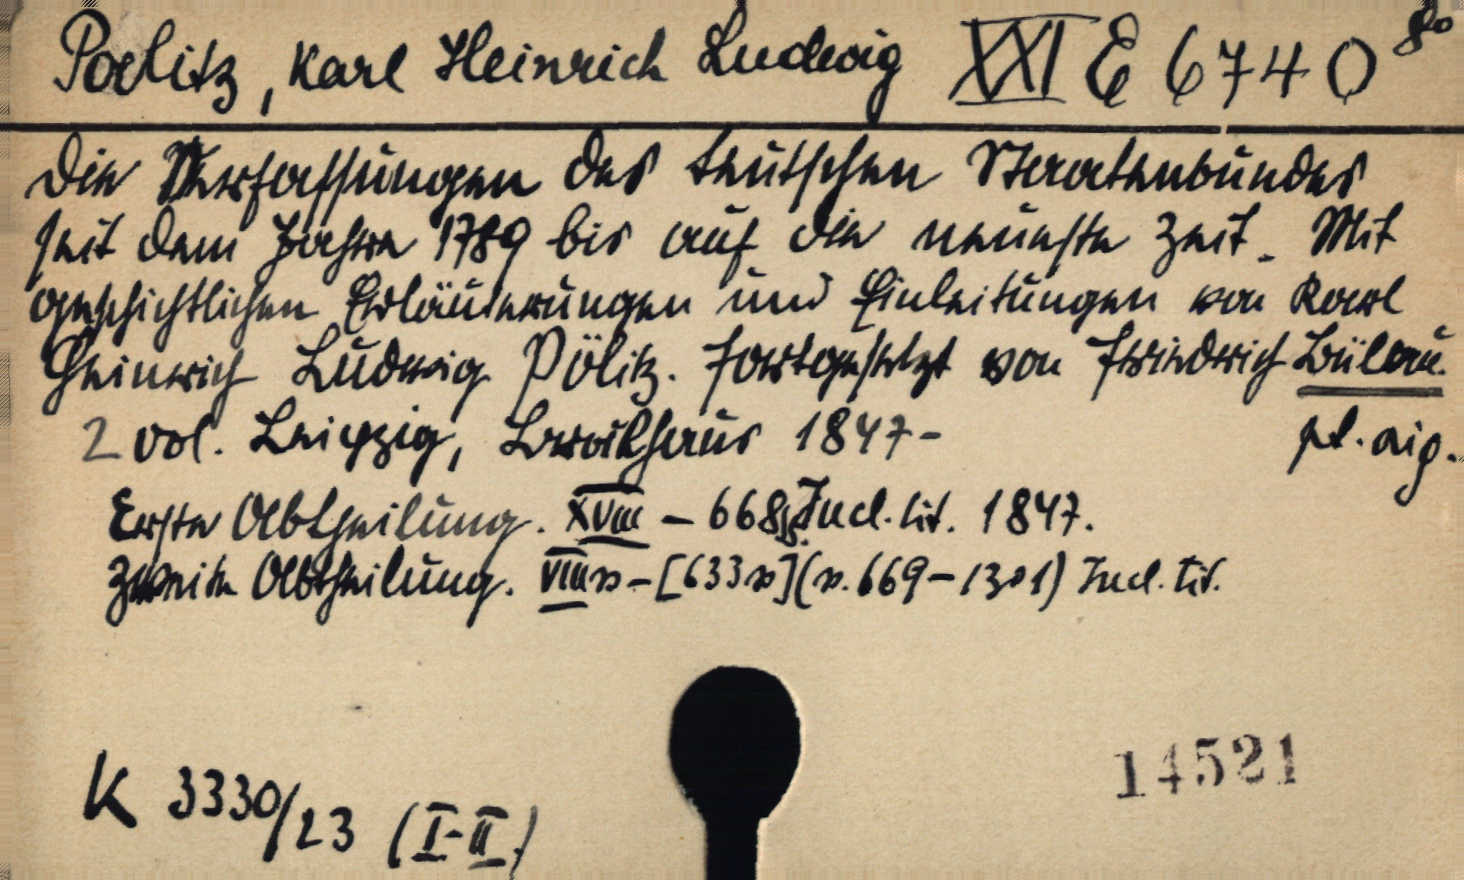 Poelitz, Karl Heinrich Ludwig XXI E 6740 8o
Die Verfassungen des teutschen Staatenbundes
seit dem Jahre 1789 bis auf die neueste Zeit. Mit
geschichtlichen Erläuterungen und Einleitungen von Karl
Heinrich Ludwig Pölitz. Fortgesetzt von Friedrich Bülau.
2 vol. Leipzig, Brockhaus 1847-
pl. aig.
Erste Abtheilung. XVIII - 668 p. Incl. tit. 1847.
Zweite Abtheilung. VIII p - [633 p] (p. 669-1301) Incl. tit.
K 3330/23 (I-II)
14521